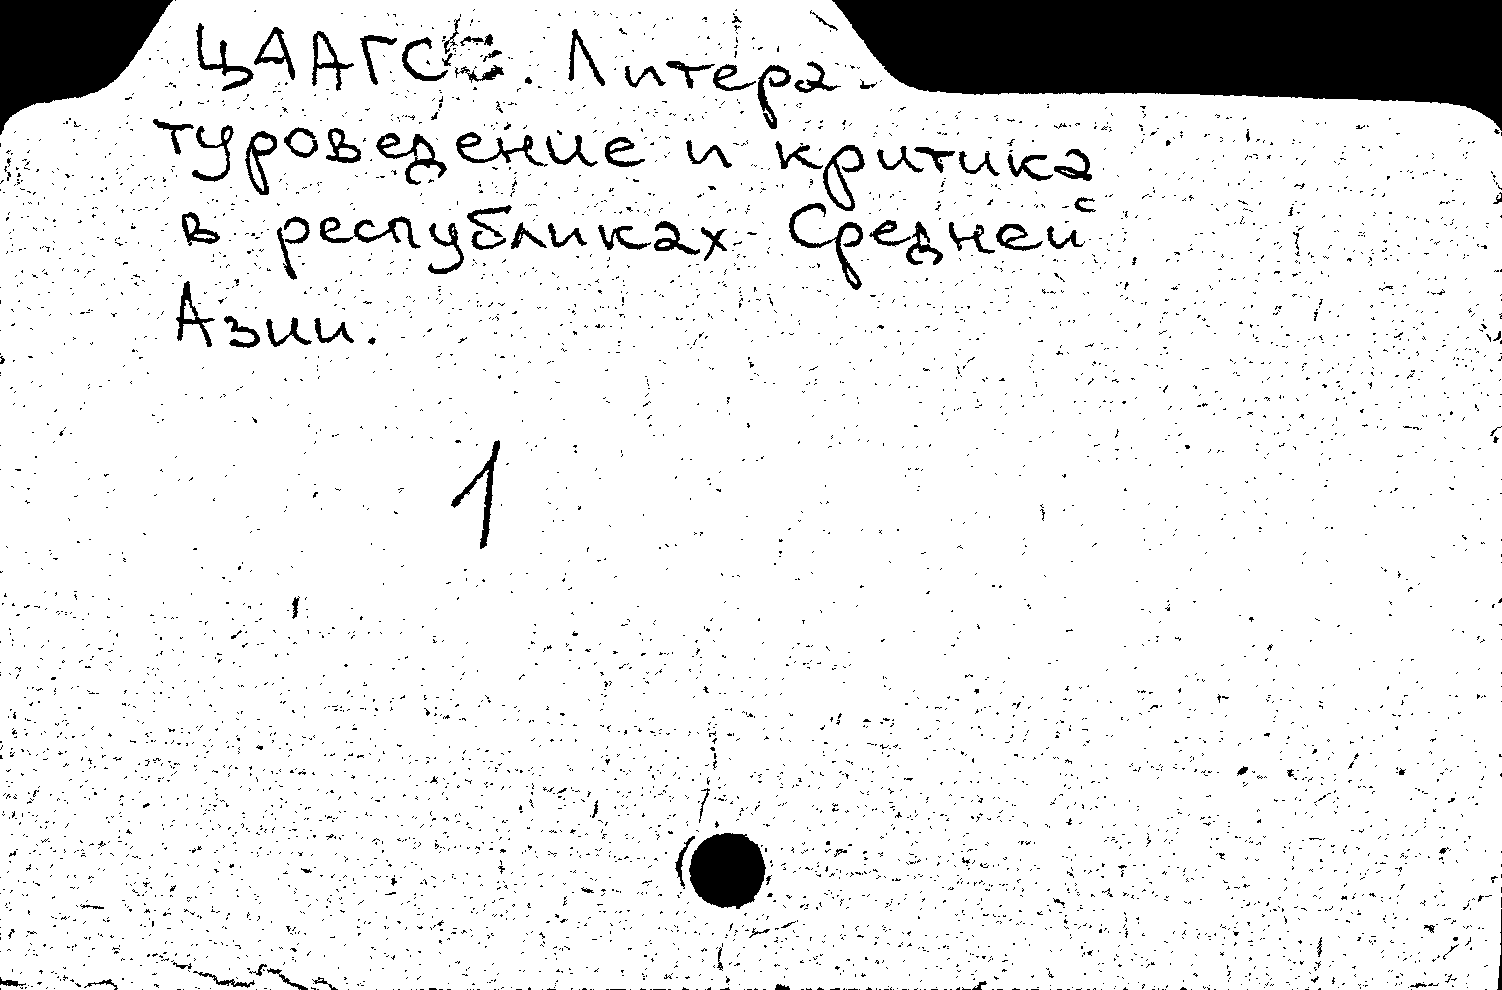 ЦААГС. Литера-
туроведение и критика
в республиках Средней
Азии.
1